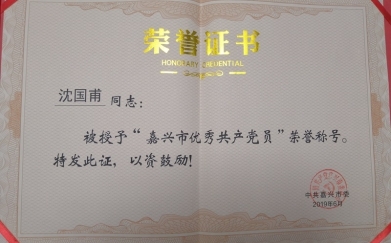 荣誉证书
HONORARY CREDENTIAL
沈国甫 同志：
被授予“嘉兴市优秀共产党员”荣誉称号。
特发此证，以资鼓励！
中共嘉兴市委
2019年6月